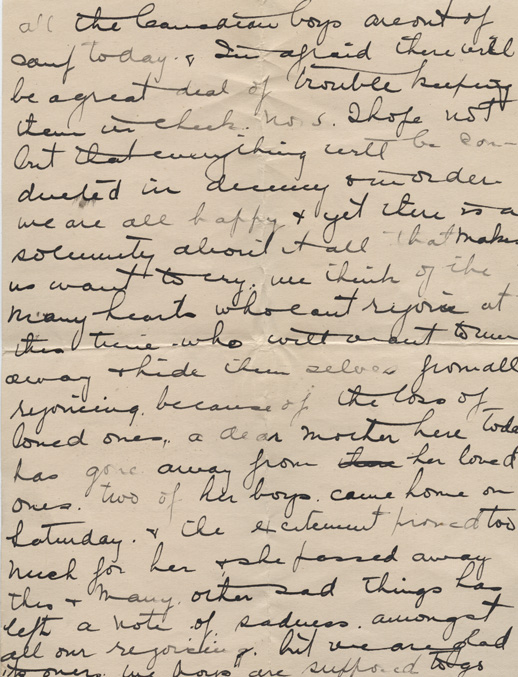 all the Canadian boys are out of
camp today. & I'm afraid there will
be a great deal of trouble keeping
them in check. No. 5. I hope not
but that everything will be con-
ducted in decency on order
we are all happy & yet there is a
solemnity about it all that makes
us want to cry. we think of the
many hearts who cant rejoice at
this time. who will want to run
away & hide them selves from all
rejoicing. because of the loss of
loved ones, a dear Mother here toda
has gone away from her loved
ones. two of her boys. came home on
Saturday. & the excitement proved too
much for her & she passed away
this & Many. other sad things has
left a note of sadness. amongst
all our rejoicing. but we are glad
its over. we boys are supposed to go